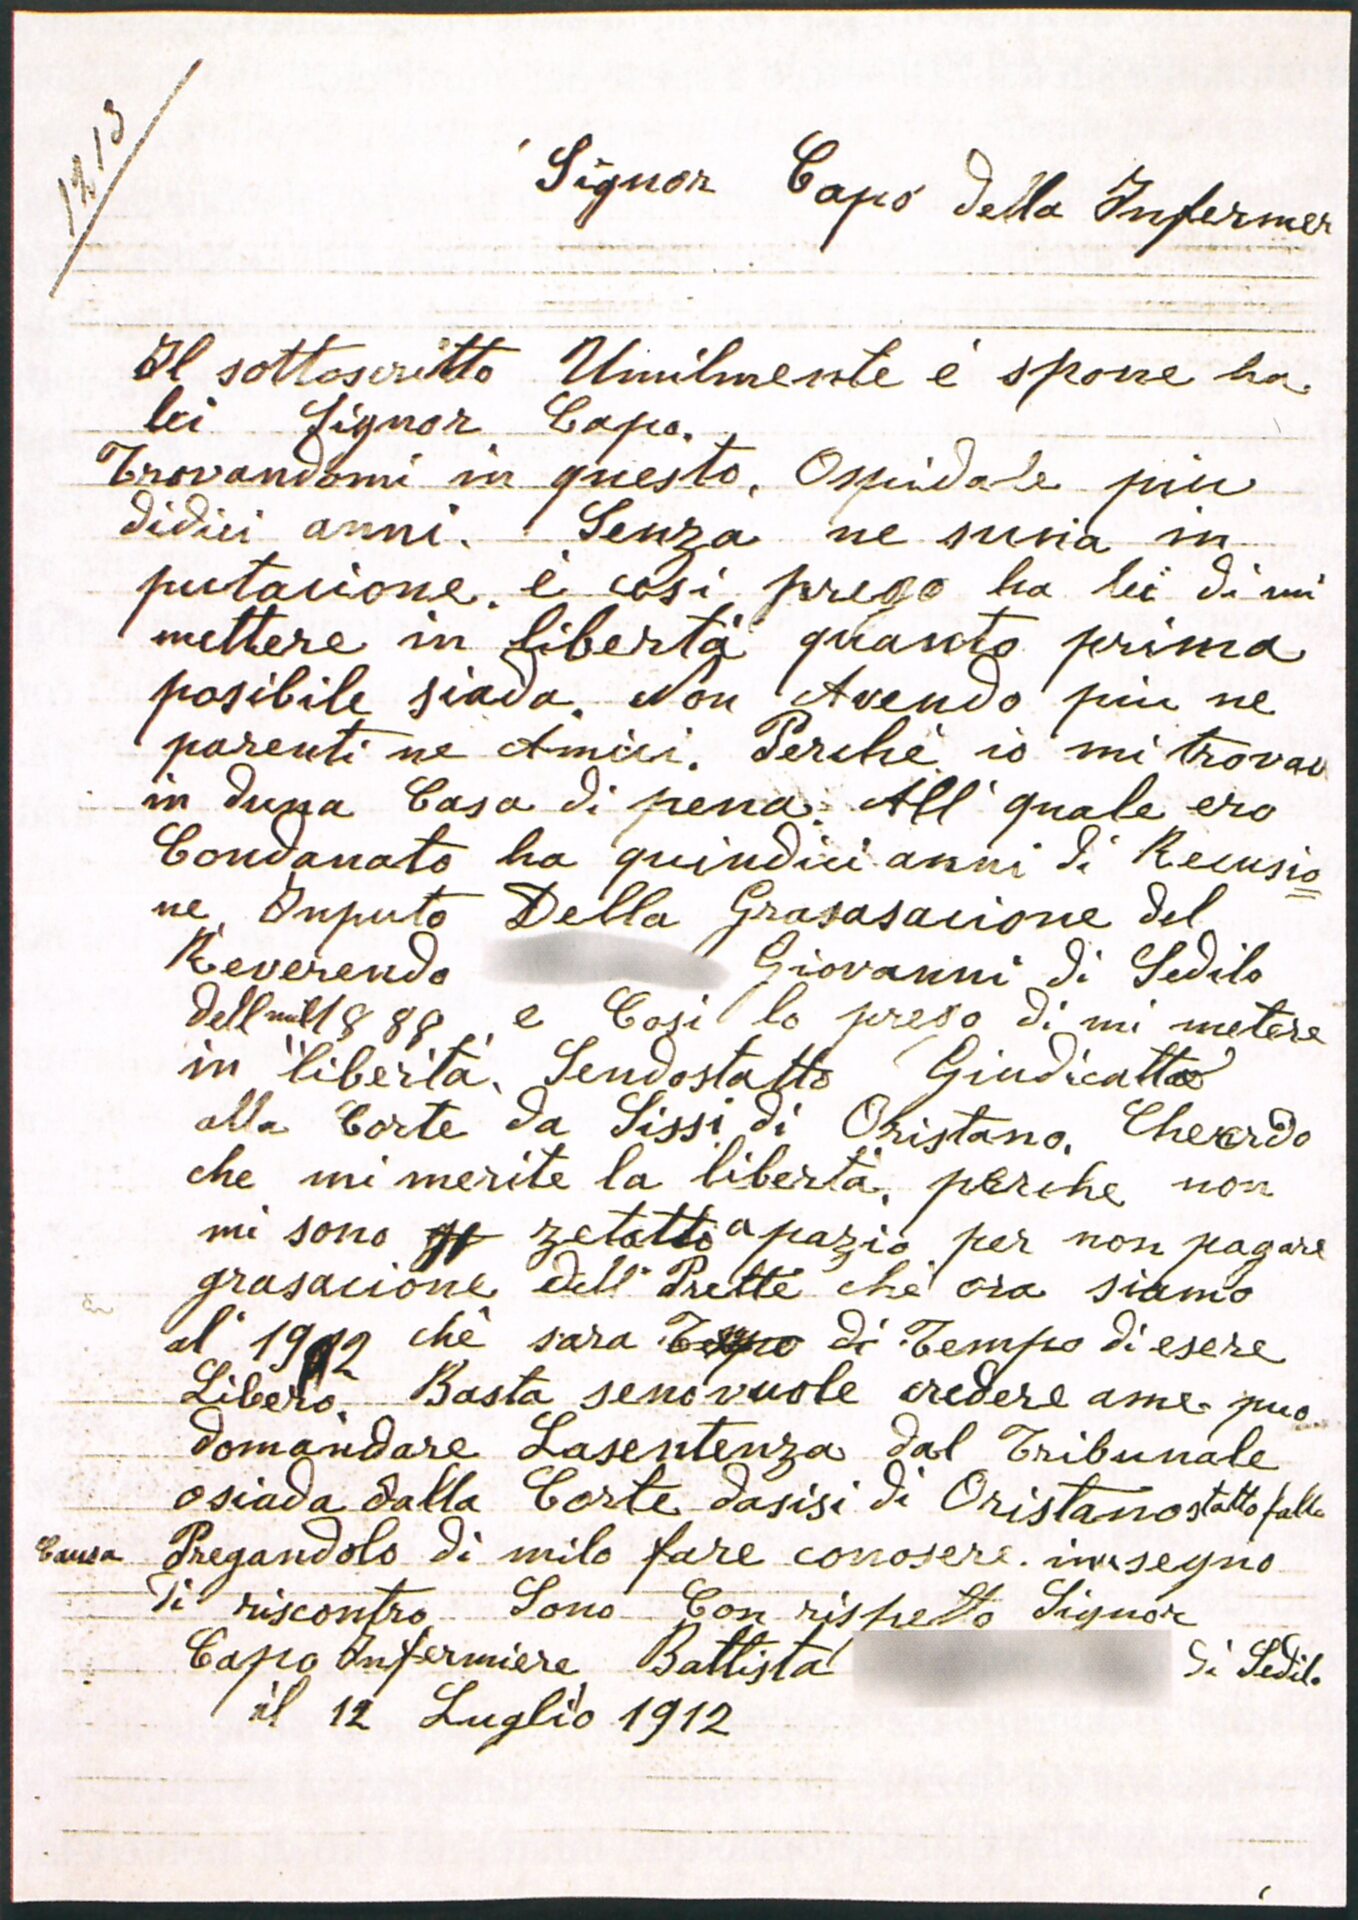 1213
Signor Capo della Infermer
Il sottoscritto Umilmente è spone ha
lei Signor Capo.
Trovandomi in questo. Ospidale piu
didici anni. Senza ne suna in
putacione. è cosi prego ha lei di mi
mettere in libertà quanto prima
posibile siada. Non Avendo piu ne
parenti ne Amici. Perchè io mi trovav
in duna Casa di pena. All' quale ero
Condanato ha quindici anni di Recusio=
ne, Inputo Della Grasasacione del
Reverendo Giovanni di Sedilo
dell 1888. e Cosi lo prego di mi metere
in libertà. Sendostatto Giudicatto
alla Corte da Sissi di Oristano. Cherdo
che mi merite la libertà. perche non
mi sono zetatto a pazio per non pagare
grasacione dell' Prette chè ora siamo
al' 1912 chê sara di Tempo di esere
Libero. Basta senovuole credere ame puo
domandare Lasentenza dal Tribunale
osiada dalla Corte dasisi di Oristano statto falla
Causa Pregandolo di milo fare conosere. in segno
di riscontro Sono Con rispetto Signor
Capo Infermiere Battista di Sedilo
il 12 Luglio 1912